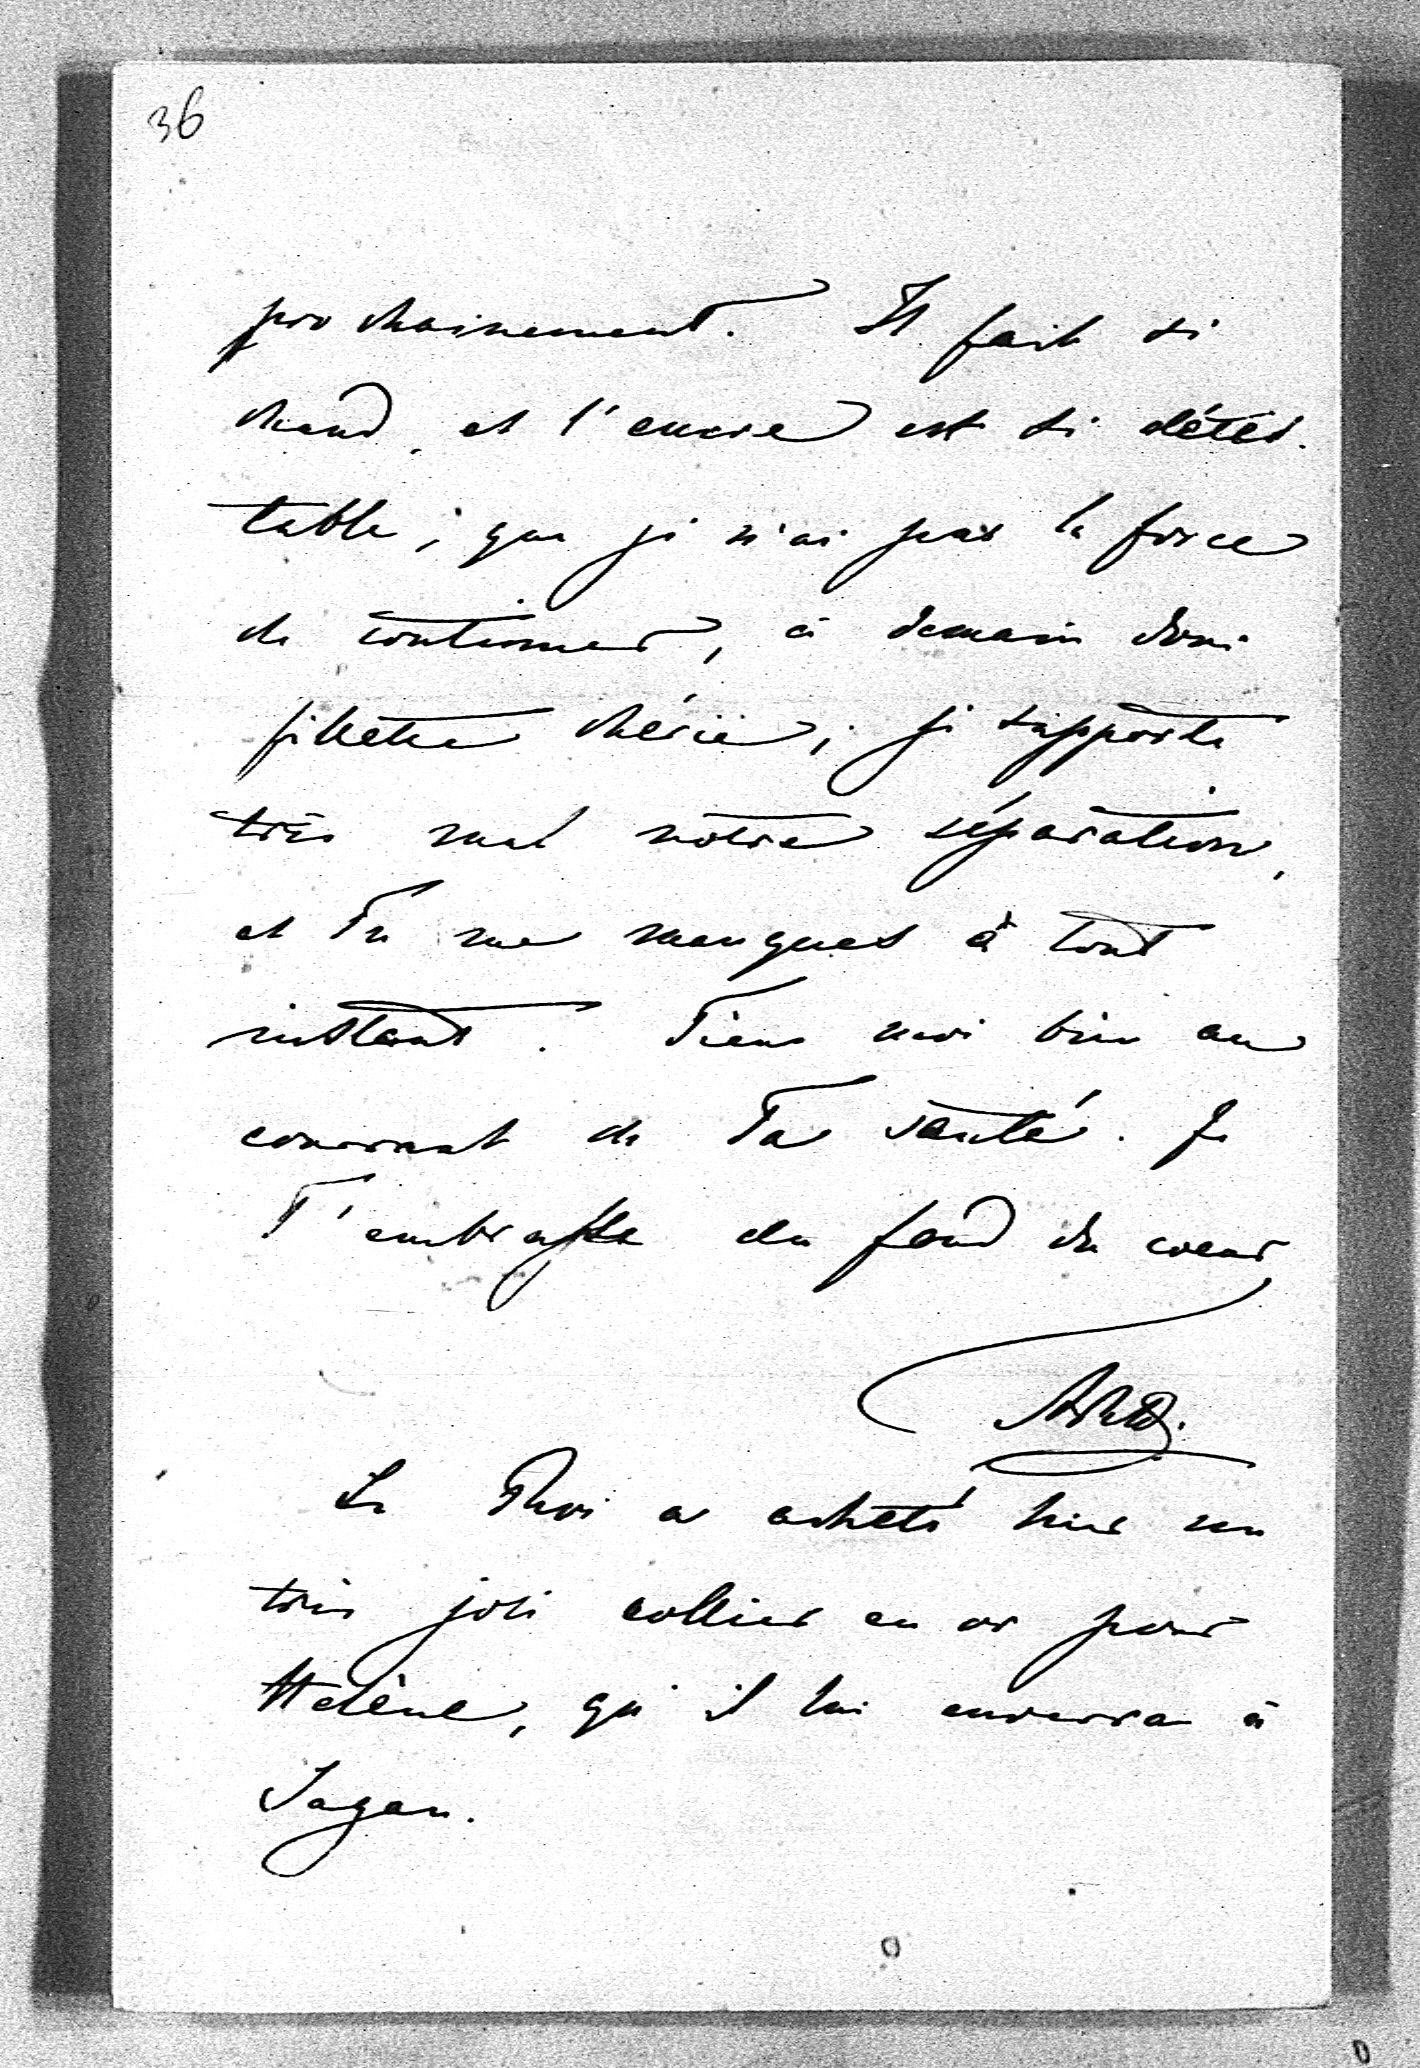 36
prochainement. Il fait si
chaud, et l'encre est si détes-
table, que je n'ai pas la force
de continuer, à demain donc
fillette chérie, je supporte
très mal notre séparation,
et Tu me manques à tout
instant. Tiens moi bien au
courrant de Ta santé. Je
T'embrasse du fond du coeur
Le Roi a acheté hier un
très joli collier en or pour
Hélène, qu'il lui enverra à
Sagan.